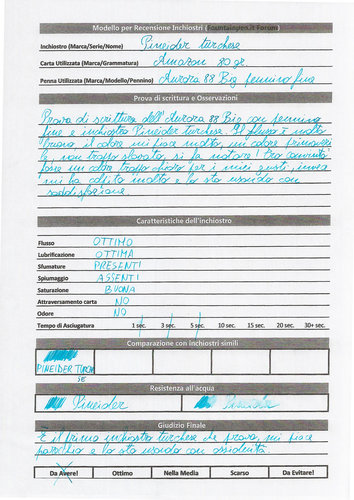 Modello per Recensione Inchiostri (Fountainpen.it Forum)
Inchiostro (Marca/Serie/Nome) Pineider turchese
Carta Utilizzata (Marca/Grammatura) Amazon 80 gr
Penna Utilizzata (Marca/Modello/Pennino) Aurora 88 Big pennino fine
Prova di scrittura e Osservazioni
Prova di scrittura dell'Aurora 88 Big con pennino
fine e inchiostro Pineider turchese. Il flusso è molto
buono, il colore mi piace molto, un colore primaverile
non troppo sfacciato, si fa notare! Ero convinto
fosse un colore troppo chiaro per i miei gusti, invece
mi ha colpito molto e lo sto usando con
soddisfazione
Caratteristiche dell'inchiostro
Flusso OTTIMO
Lubrificazione OTTIMA
Sfumature PRESENTI
Spiumaggio ASSENTI
Saturazione BUONA
Attraversamento carta NO
Odore NO
Tempo di Asciugatura 1 sec. 3 sec. 5 sec. 10 sec. 15 sec. 20 sec. 30+ sec.
Comparazione con inchiostri simili
PINEIDER TURCHE
SE
Resistenza all'acqua
Pineider Pineider
Giudizio Finale
È il primo inchiostro turchese che provo, mi piace
parecchio e lo sto usando con assiduità
Da Avere! Ottimo Nella Media Scarso Da Evitare!